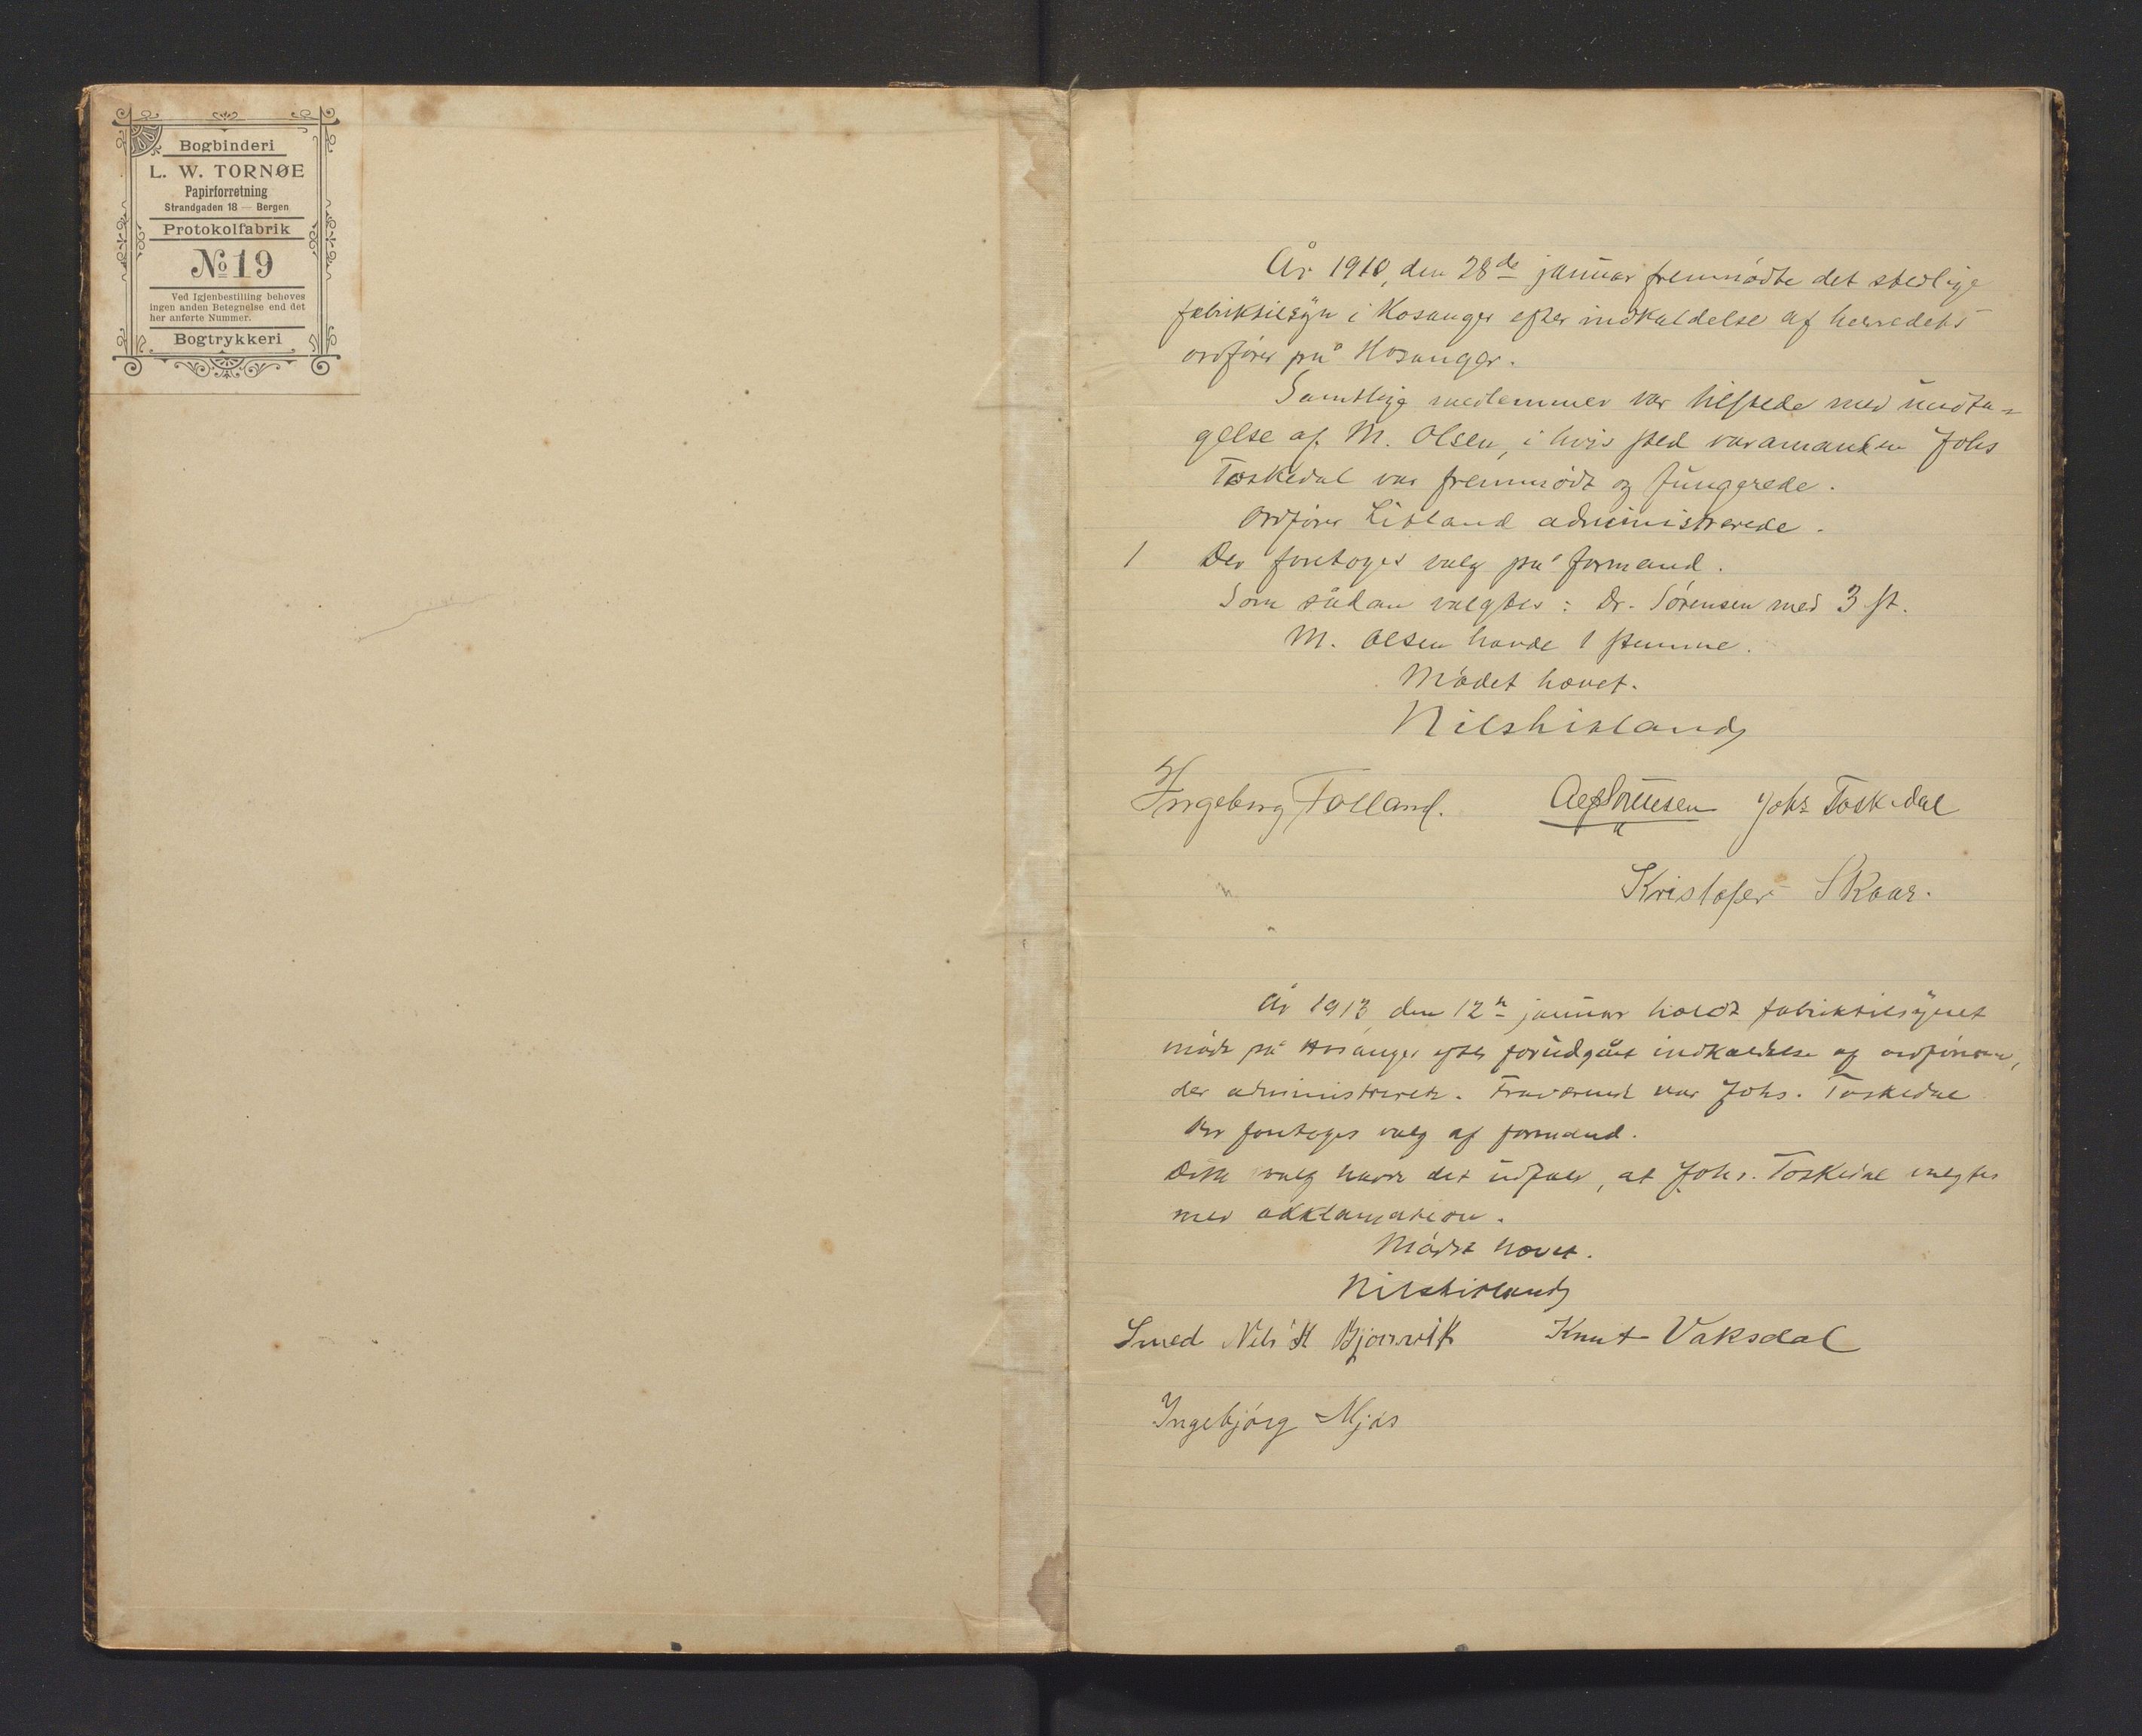 Bogbinderi
L. W. TORNØE
Papirforretning
Strandgaden 18 — Bergen
Protokolfabrik
№ 19
Ved Igjenbestilling behøves
ingen anden Betegnelse end det
her anførte Nummer.
Bogtrykkeri
År 1910, den 28de januar fremmødte det stedlige
fabriktilsyn i Hosanger efter indkaldelse af herredets
ordfører på Hosanger.
Samtlige medlemmer var tilstede med undta-
gelse af M. Olsen, i hvis sted varamanden Johs
Toskedal var fremmødt og fungerede.
Ordfører Lisland administrerede.
1 Der foretoges valg på formand.
Som sådan valgtes: Dr. Sørensen med 3 st.
M. Olsen havde 1 stemme.
Mødet hævet.
Nils Lisland
Ingeborg Tolland. Sørensen Johs Toskedal
Kristofer Skaar.
År 1913 den 12n januar holdt fabriktilsynet
møde på Hosanger efter forudgået indkaldelse af ordføreren,
der administrerede. Fraværende var Johs. Toskedal
Der foretoges valg af formand.
Dette valg havde det udfald, at Johs. Toskedal valgtes
med akklamation.
Mødet hævet.
Nils Lisland
Smed Nils H Bjørsvik Knut Vaksdal
Ingebjørg Mjøs